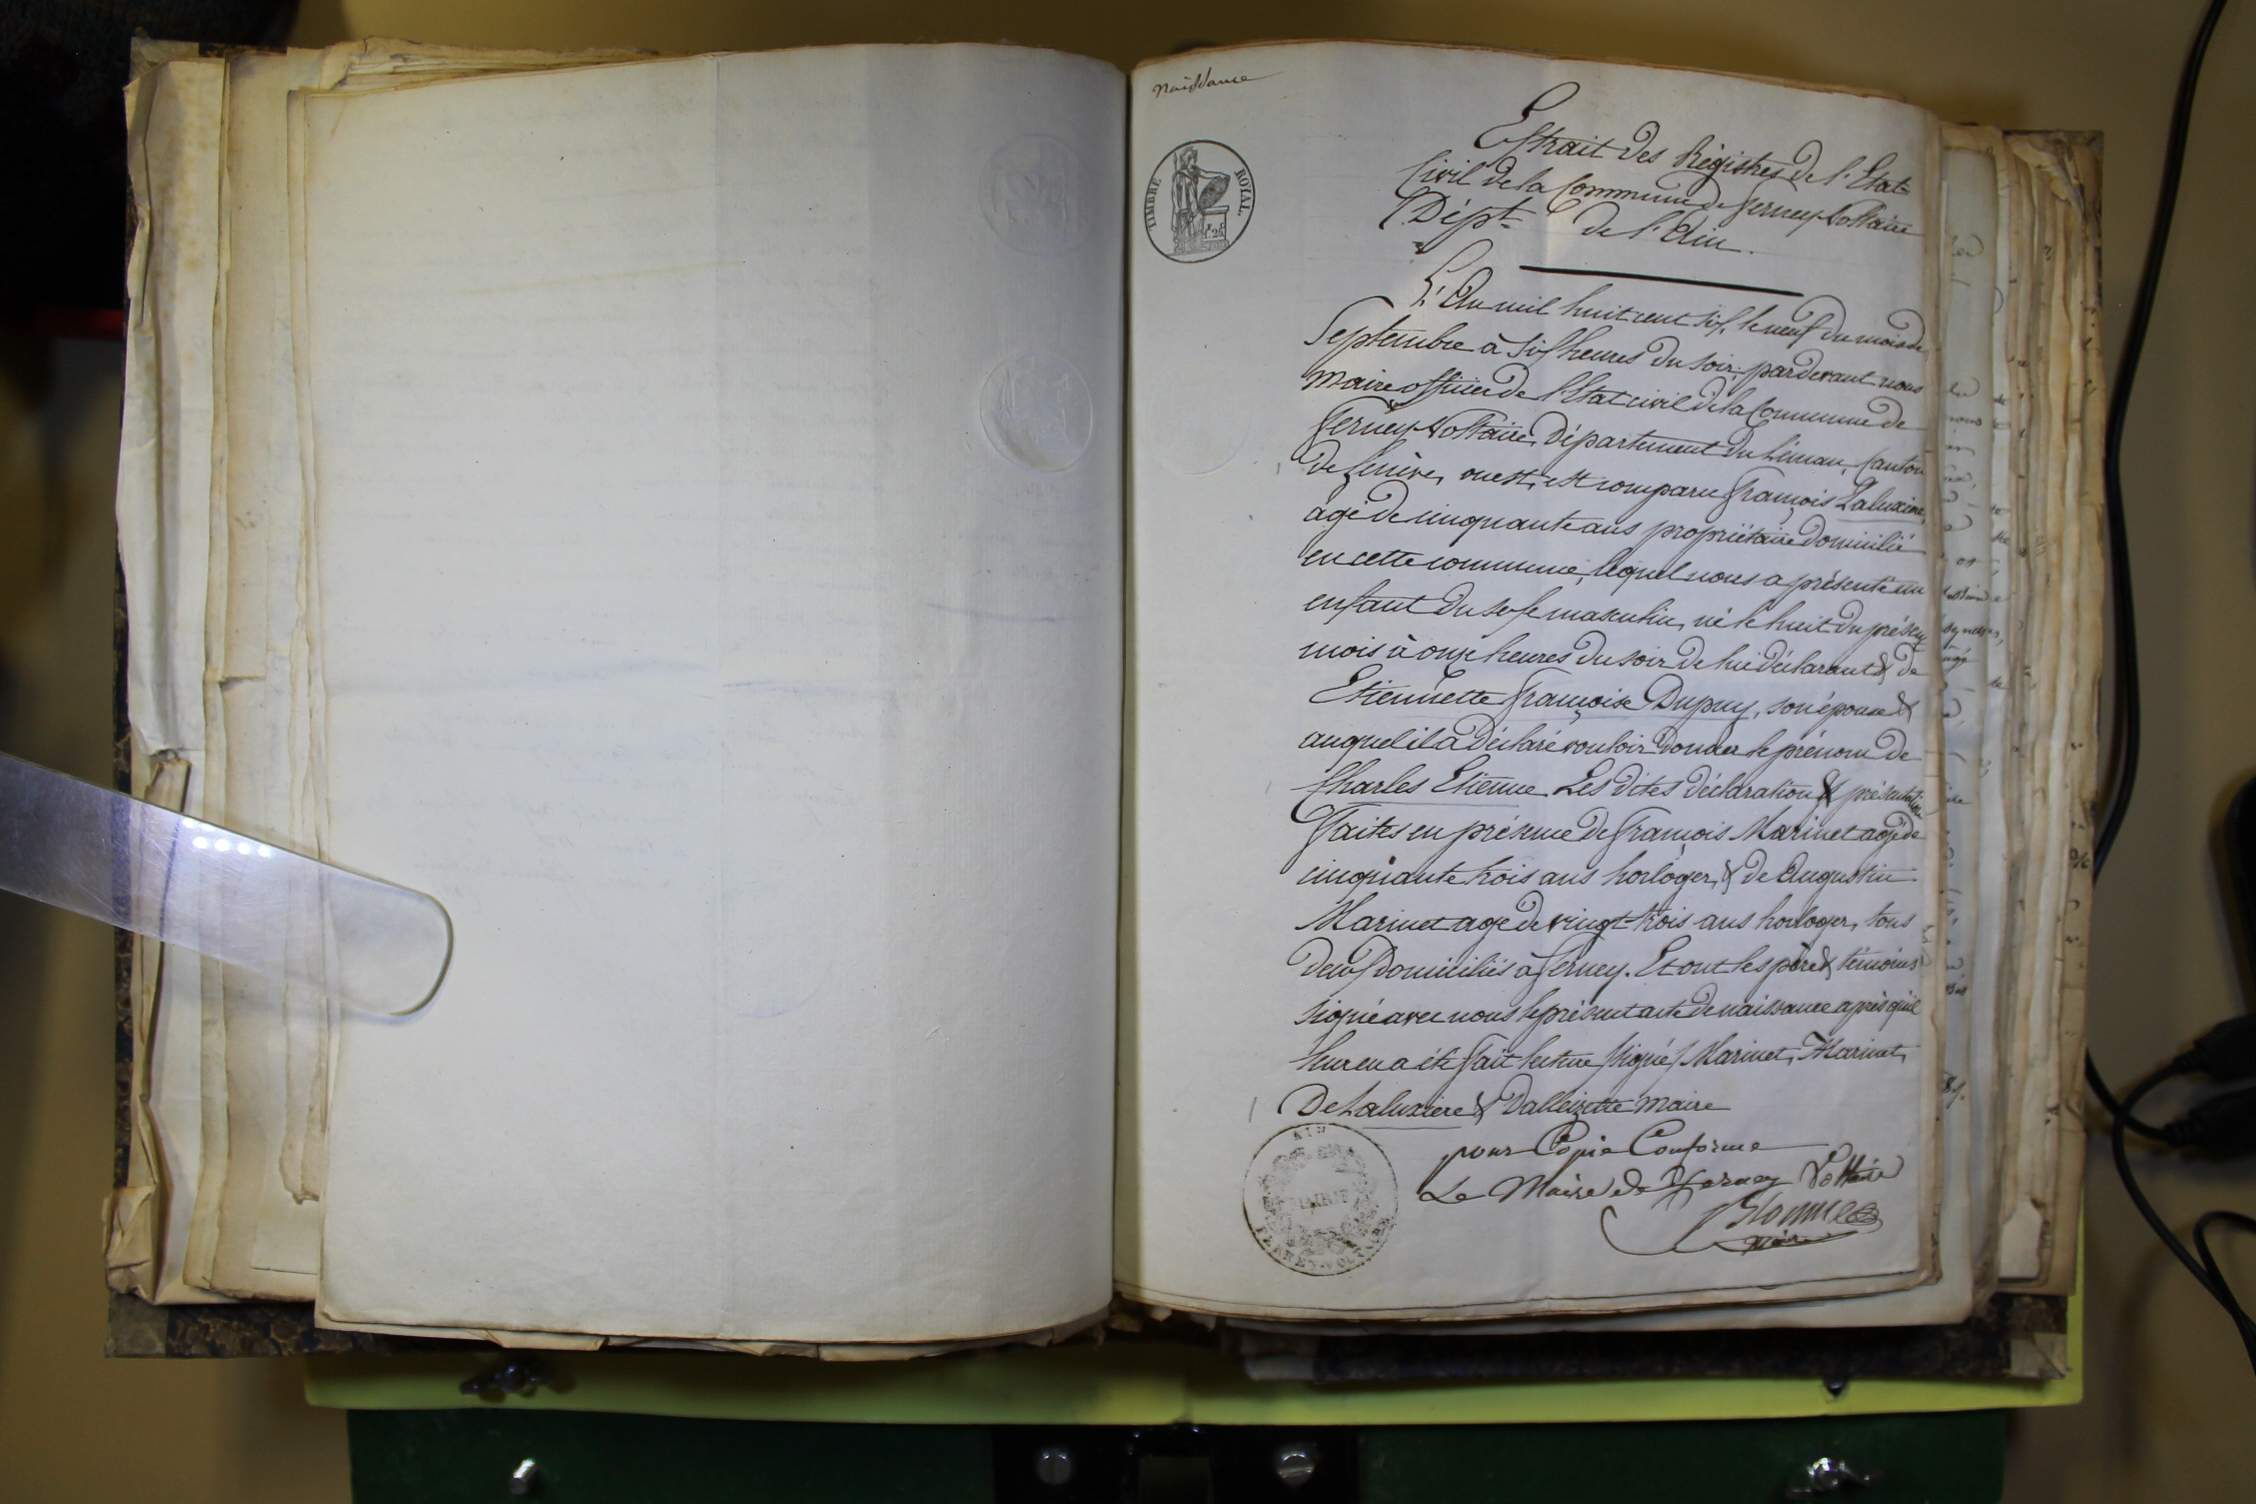 Naissance
TIMBRE ROYAL.
Extrait des Régistres de l'Etat
Civil de la Commune de Ferney Voltaire
Dépt. de l'Ain.
L'An mil huit cent six, le neuf du mois de
Septembre à six heures du soir, pardevant nous
Maire officier de l'Etat civil de la Commune de
Ferney Voltaire, Département du Léman, Canton
de Genève, ouest, est comparu François Laluxiere,
agé de cinquante ans propriétaire domicilié
en cette commune, lequel nous a présenté un
enfant du sexe masculin, né le huit du présent
mois à onze heures du soir de lui déclarant & de
Etiennette Françoise Dupuy, son épouse &
auquel il a déclaré vouloir donner le prénom de
Charles Etienne. Les dites déclaration & présentation
Faites en présence de François Marinet agé de
cinquante trois ans horloger, & de Augustin
Marinet agé de vingt trois ans horloger, tous
deux domiciliés à Ferney. Et ont les père & témoins
signé avec nous le présent acte de naissance après qu'il
leur en a été fait lecture signé, Marinet, Marinet,
De Laluxiere & Dalleizette Maire
pour Copie Conforme
Le Maire de Ferney Voltaire
AIN
MAIRIE
FERNEY-VOLTAIRE